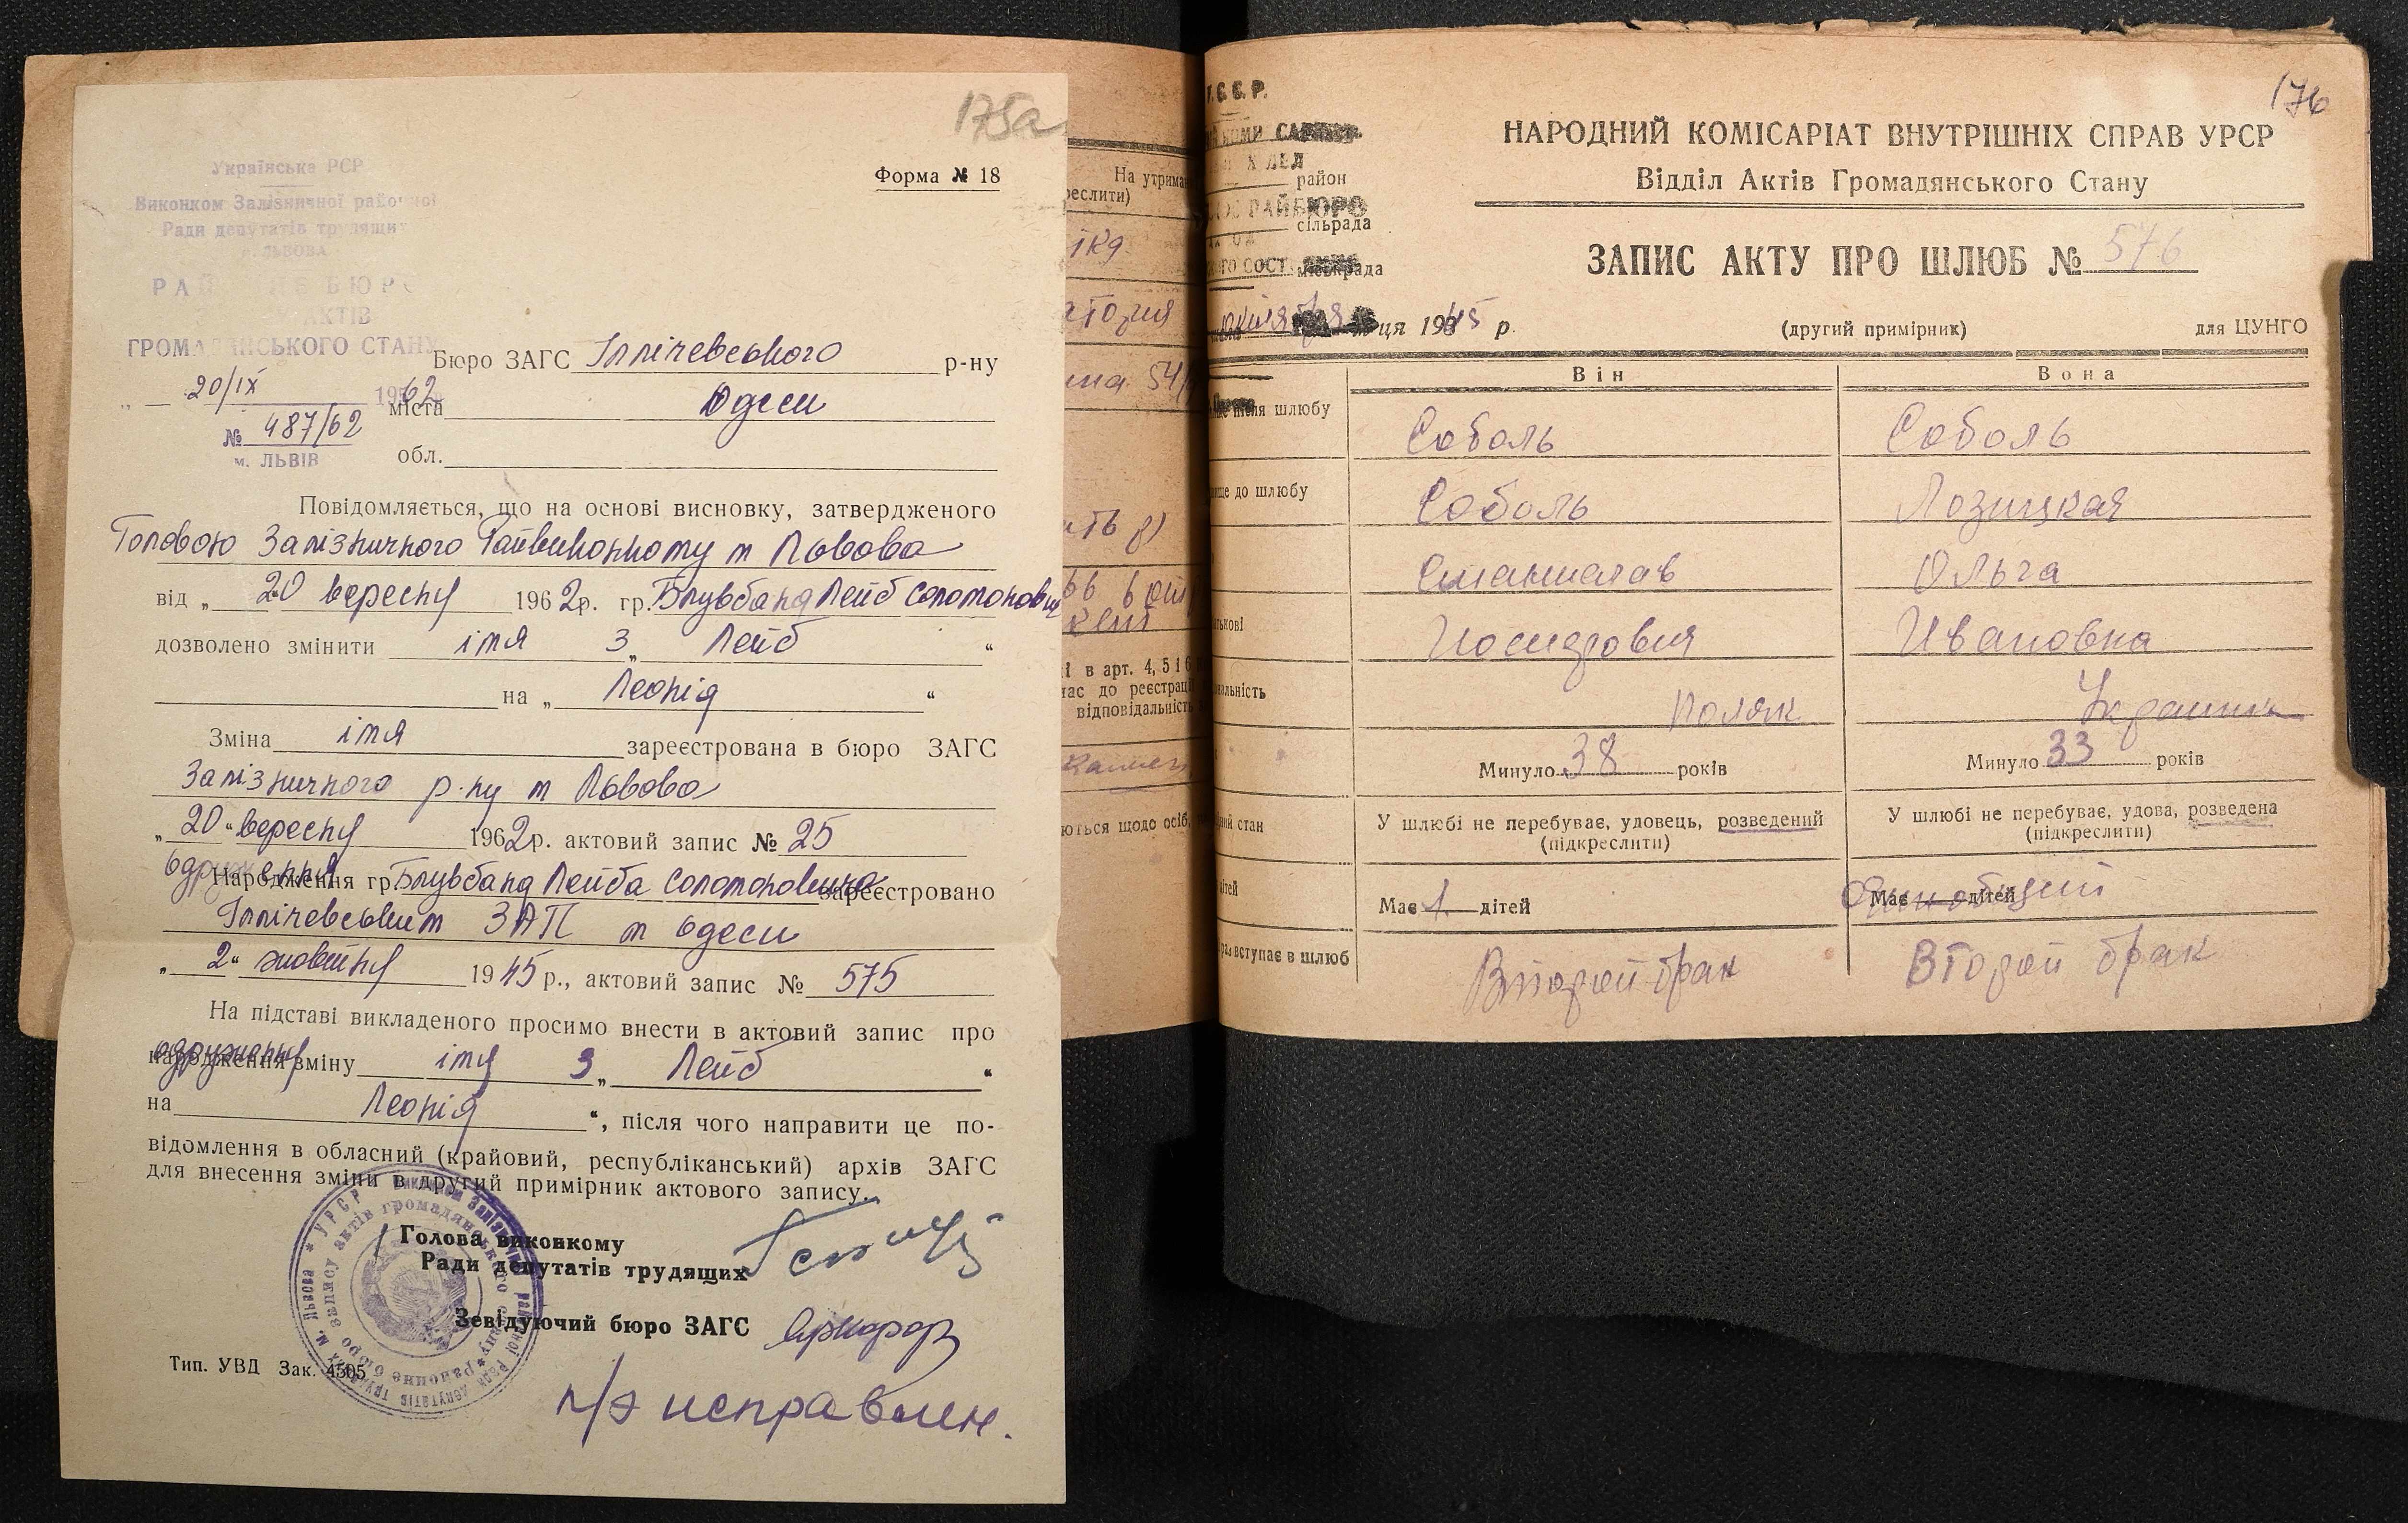 175а
Українська РСР
Виконком Залізничної районної
Ради депутатів трудящих
ЛЬВОВА
БЮРО
АКТІВ
ГРОМАДЯНСЬКОГО СТАНУ
20/IX 1962
№ 487/62
м. ЛЬВІВ
Форма № 18
Бюро ЗАГС Іллічевського р-ну
міста Одеси
обл.
Повідомляється, що на основі висновку, затвердженого
Головою Залізничного Райвиконкому м Львова
від „ 20 вересня 1962р. гр. Блувбанд Лейб Соломонович
дозволено змінити імя З „ Лейб “
на „ Леонід “
Зміна імя зареєстрована в бюро ЗАГС
Залізничного р-ну м Львова
„ 20 “ вересня 1962р. актовий запис № 25
одруження
Народження гр. Блувбанд Лейба Соломоновича зареєстровано
Іллічевським ЗАГС м Одеси
„ 2 “ жовтня 1945 р., актовий запис № 575
На підставі викладеного просимо внести в актовий запис про
одруження
народження зміну імя З „ Лейб “
на Леонід “, після чого направити це по-
відомлення в обласний (крайовий, республіканський) архів ЗАГС
для внесення зміни в другий примірник актового запису.
Голова виконкому
Ради депутатів трудящих
Зевідуючий бюро ЗАГС
Тип. УВД Зак. 4505
п/э исправлен.
На утриман
реслити)
54/
і в арт. 4, 5 і 6
час до реєстрації
відповідальність
ються щодо осіб,
176
С.С.Р.
район
РАЙБЮРО
сільрада
міськрада
ця 1945 р.
НАРОДНИЙ КОМІСАРІАТ ВНУТРІШНІХ СПРАВ УРСР
Відділ Актів Громадянського Стану
ЗАПИС АКТУ ПРО ШЛЮБ № 576
(другий примірник)
для ЦУНГО
Він
Вона
після шлюбу Соболь Соболь
до шлюбу Соболь Лозицкая
Станислав Ольга
Иосифович Ивановна
Поляк Украинка
Минуло 38 років Минуло 33 років
стан У шлюбі не перебуває, удовець, розведений У шлюбі не перебуває, удова, розведена
(підкреслити) (підкреслити)
дітей Має 1 дітей Має дітей
вступає в шлюб Второй брак Второй брак